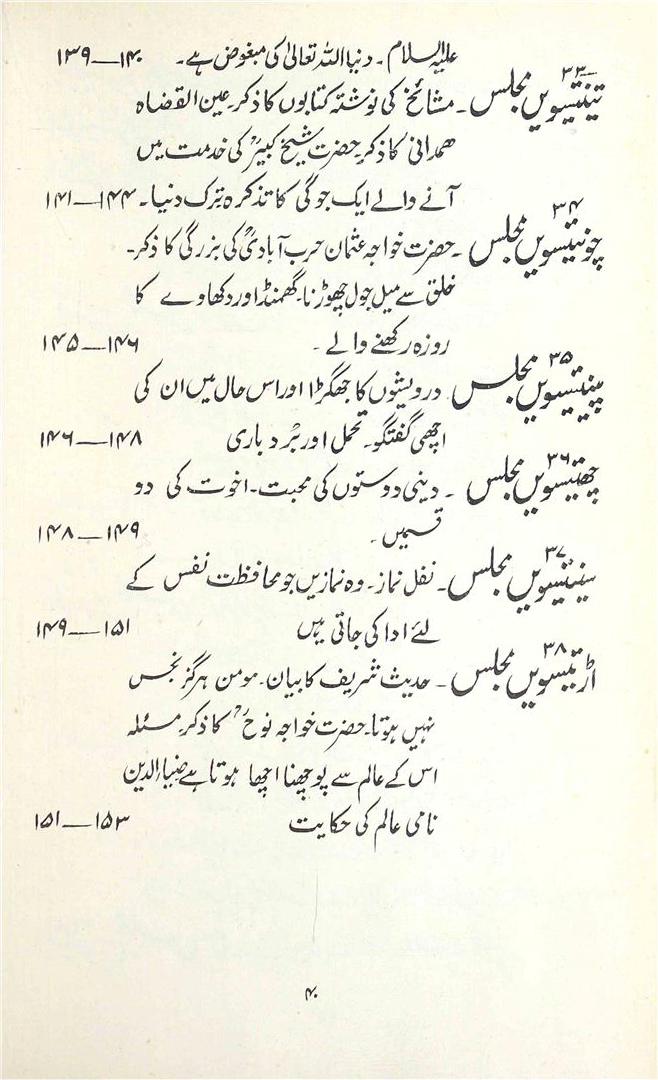 علیہ السلام۔ دنیا اللہ تعالیٰ کی مبغوض ہے۔ ۱۴۰—۱۳۹
۳۳
تینتیسویں مجلس۔ مشائخ کی نوشتہ کتابوں کا ذکر۔ عین القضاہ
ھمدانیؒ کا ذکر۔ حضرت شیخ کبیرؒ کی خدمت میں
آنے والے ایک جوگی کا تذکرہ ترک دنیا۔ ۱۴۴—۱۴۱
۳۴
چونتیسویں مجلس۔ حضرت خواجہ عثمان حرب آبادیؒ کی بزرگی کا ذکر۔
خلق سے میل جول چھوڑنا۔ گھمنڈ اور دکھاوے کا
روزہ رکھنے والے۔ ۱۴۶—۱۴۵
۳۵
پینتیسویں مجلس۔ درویشوں کا جھگڑا اور اس حال میں ان کی
اچھی گفتگو۔ تحمل اور بُردباری ۱۴۸—۱۴۶
۳۶
چھتیسویں مجلس۔ دینی دوستوں کی محبت۔ اخوت کی دو
قسمیں۔ ۱۴۹—۱۴۸
۳۷
سینتیسویں مجلس۔ نفل نماز۔ وہ نمازیں جو محافظت نفس کے
لئے ادا کی جاتی ہیں ۱۵۱—۱۴۹
۳۸
اڑتیسویں مجلس۔ حدیث شریف کا بیان۔ مومن ہرگز نجس
نہیں ہوتا۔ حضرت خواجہ نوحؒ کا ذکر۔ مسئلہ
اس کے عالم سے پوچھنا اچھا ہوتا ہے ضیاء الدین
نامی عالم کی حکایت ۱۵۳—۱۵۱
۴۰